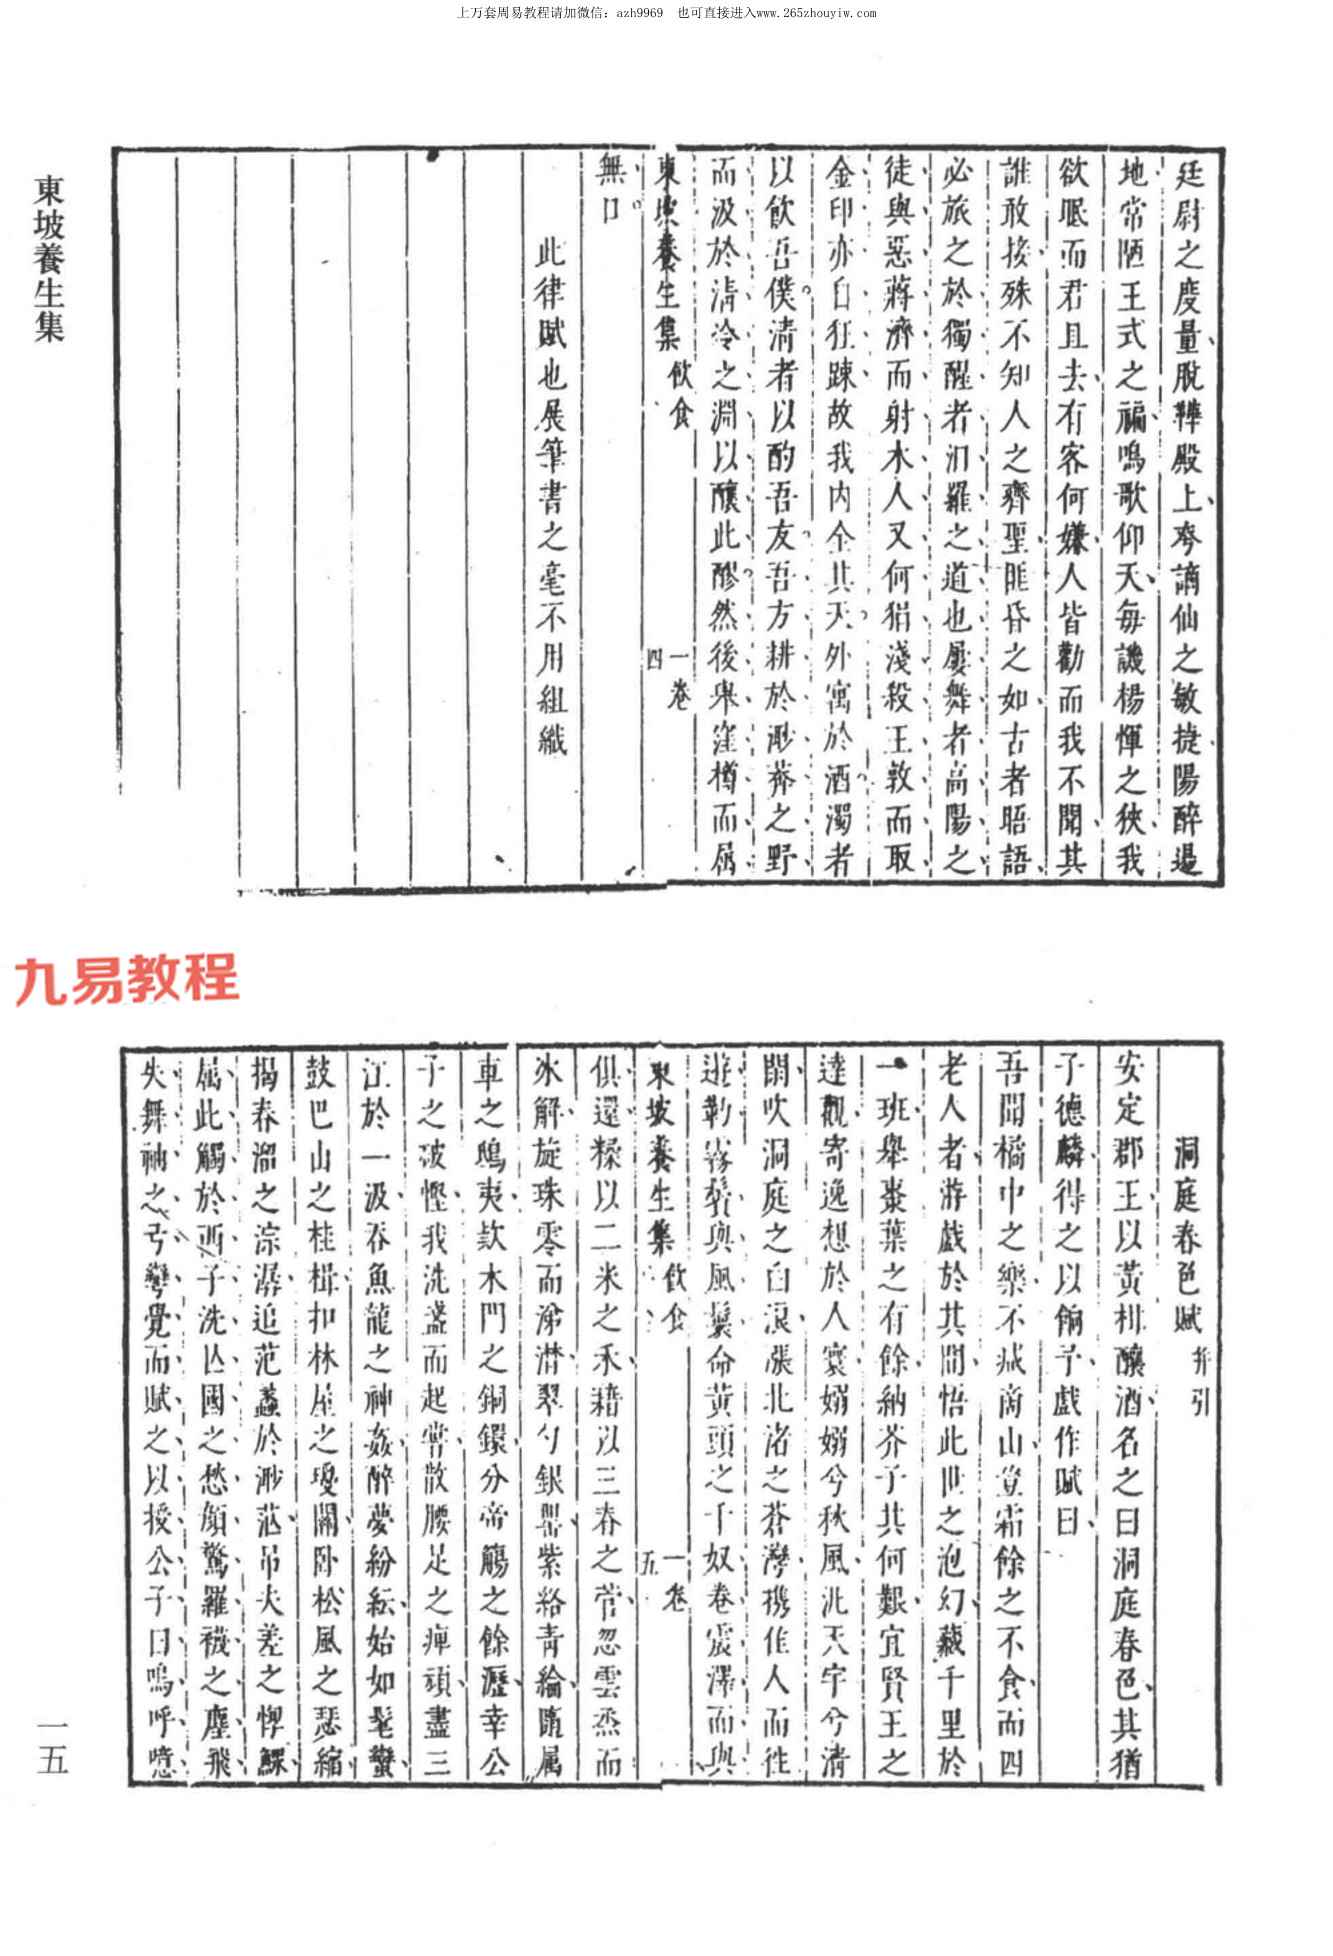 上万套周易教程请加微信：azh9969　也可直接进入www.265zhouyiw.com
東坡養生集
廷尉之度量脫鞾殿上夸謫仙之敏捷陽醉逷
地常陋王式之褊嗚歌仰天每譏楊惲之狹我
欲眠而君且去有客何嫌人皆勸而我不聞其
誰敢接殊不知人之齊聖匪昏之如古者晤語
必旅之於獨醒者汨羅之道也屢舞者高陽之
徒與惡蔣濟而射木人又何狷淺殺王敦而取
金印亦自狂踈故我内全其天外寓於酒濁者
以飲吾僕清者以酌吾友吾方耕於渺莽之野
而汲於清泠之淵以釀此醪然後舉窪樽而屬
東坡養生集 飲食 一卷 四
無口
此律賦也展筆書之毫不用組織
九易教程
洞庭春色賦 并引
安定郡王以黃柑釀酒名之曰洞庭春色其猶
子德麟得之以餉予戲作賦曰
吾聞橘中之樂不减商山豈霜餘之不食而四
老人者游戲於其間悟此世之泡幻藏千里於
一班舉棗葉之有餘納芥子其何艱宜賢王之
達觀寄逸想於人寰嫋嫋兮秋風泚天宇兮清
閒吹洞庭之白浪漲北渚之蒼灣携佳人而往
遊勒霧鬢與風鬟命黃頭之千奴卷震澤而與
東坡養生集 飲食 一卷 五
俱還糅以二米之禾藉以三春之菅忽雲烝而
氷解旋珠零而涕潸翠勺銀罌紫絡青綸隨屬
車之鴟夷欵木門之銅鐶分帝觴之餘瀝幸公
子之破慳我洗盞而起嘗散腰足之痺頑盡三
江於一汲吞魚龍之神姦醉夢紛紜始如髦蠻
鼓巴山之桂楫扣林屋之瓊關卧松風之瑟縮
揭春溜之淙潺追范蠡於渺茫吊夫差之惸鰥
屬此觴於西子洗亾國之愁顏驚羅襪之塵飛
失舞袖之弓彎覺而賦之以授公子曰嗚呼噫
一五